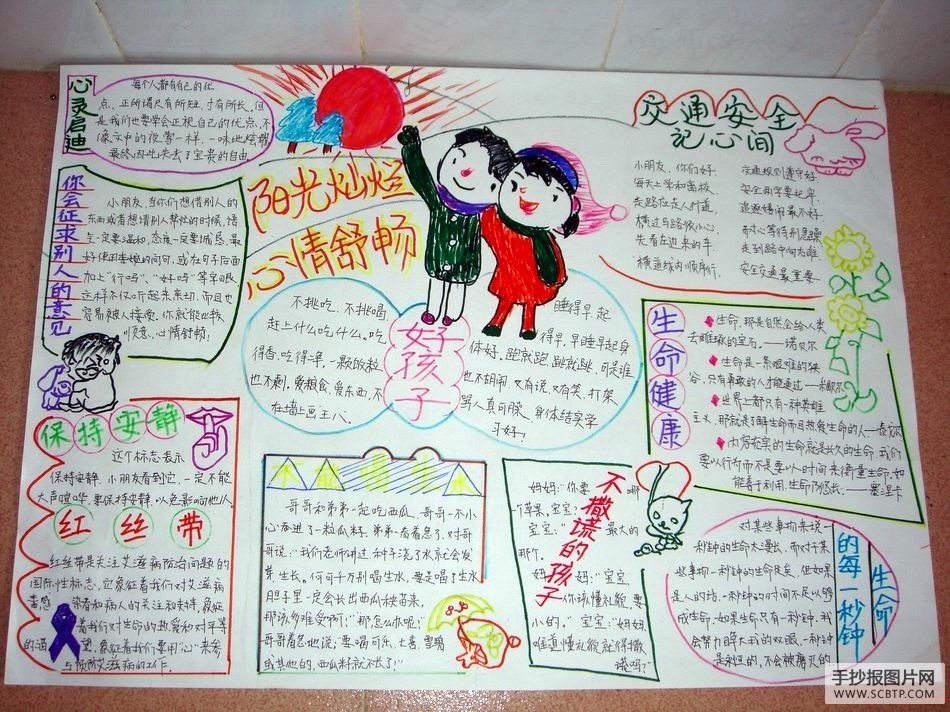 心灵启迪
每个人都有自己的优
点，正所谓尺有所短，寸有所长，但
是我们也要学会正视自己的优点，不
像文中的夜莺一样，一味地炫耀
最终因此失去了宝贵的自由
阳光灿烂
心情舒畅
交通安全
记心间
小朋友，你们好，
每天上学和离校，
走路应走人行道，
横过马路很小心，
先看左边来的车，
横道线内顺序行，
交通规则遵守好
安全两字要记牢
追逐嬉闹最不好
耐心等待别急躁
走到路中向右瞧
安全交最重要
你会征求别人的意见
小朋友，当你们想借别人的
东西或者想请别人帮忙的时候，语
气一定要温和，态度一定要诚恳，最
好使用委婉的问句，或在句子后面
加上"行吗"、"好吗"等字眼
这样不仅听起来亲切，而且也
容易被人接受，你就能让我
顺意，心情舒畅，
好孩子
不挑吃，不挑喝
赶上什么吃什么，吃
得香，吃得净，一颗饭粒
也不剩，爱粮食，爱东西，不
在墙上画王八，
睡得早，起
得早，早睡早起身
体好，跑就跑，跳就跳，可是谁
也不胡闹，又有说，又有笑，打架
骂人真可躁，身体结实学
习好！
生命健康
生命，那是自然会给人类
去雕琢的宝石。——诺贝尔
生命是一条艰难的狭
谷，只有勇敢的人才能通过——米歇尔
世界上都只有一种英雄
主义，那就是了解生命而且热爱生命的人——
内容充实的生命就是长久的生命，我们
要以行为而不是要以时间来衡量生命，如
能善于利用，生命乃悠长。——塞涅卡
保持安静
这个标志表示
保持安静，小朋友看到它，一定不能
大声喧哗，要保持安静，以免影响他人。
红丝带
红丝带是关注艾滋病防治问题的
国际性标志，它象征着我们对艾滋病
毒感染者和病人的关注和支持，象征
着我们对生命的热爱和对平等
的渴望，象征着我们要用"心"来参
与预防艾滋病的工作。
哥哥和弟弟一起吃西瓜，哥哥一不小
心吞进了一粒瓜籽，弟弟一看着急了，对哥
哥说："我们老师讲过，种子浇了水就会发
芽生长。你可千万别喝生水，要是喝了生水
肚子里一定会长出西瓜秧苗来，
那该多难受啊！""那怎么办呢？"
哥哥着急地说，要喝可乐、七喜、雪碧
或其他的，西瓜籽就不长了！"
不撒谎的孩子
妈妈："你要哪
个苹果，宝宝？"
宝宝："最大的
那个。"
妈妈："宝宝，
你该懂礼貌，要
小的。"宝宝："妈妈，
难道懂礼貌就得撒
谎吗？"
生命的每一秒钟
对某些事物来说一
秒钟的生命太漫长，而对于某
些事物一秒钟的生命足矣，但如果
是人的话，一秒钟的时间不足以够
成生命，如果生命只有一秒钟，我
会努力睁大我的双眼，一秒钟
是永恒的，不会被磨灭的
手抄报图片网
WWW.SCBTP.COM